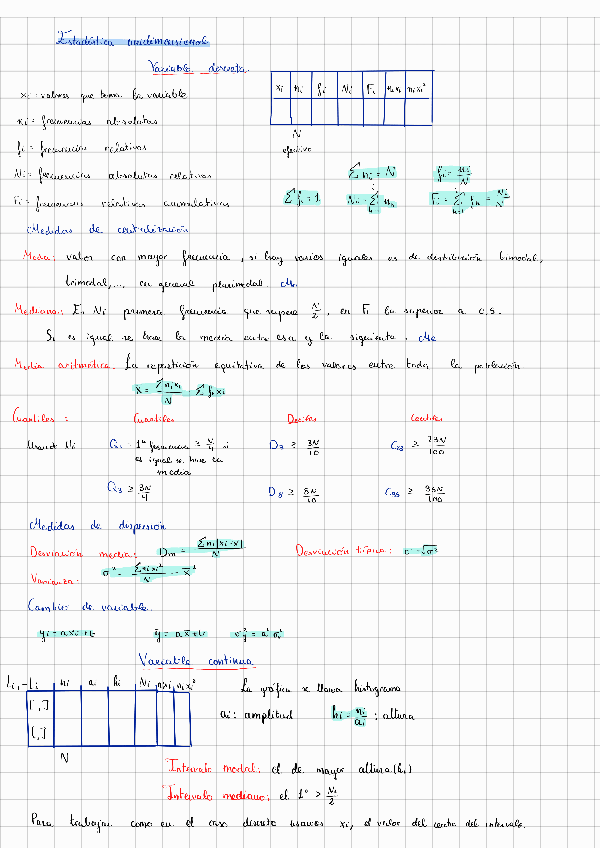 Estadística unidimensional
Variable discreta
xi nᵢ fᵢ Nᵢ Fᵢ nᵢxᵢ nᵢxᵢ²
xi: valores que toma la variable
ni = frecuencias absolutas
N
efectivo
fi = frecuencias relativas
Ni = frecuencias absolutas relativas
∑ni = N fi = ni/N
Fi = frecuencias relativas acumulativas
∑fi = 1 Ni = ∑nₕ Fi = ∑fₕ = Ni/N
Medidas de centralización
Moda: valor con mayor frecuencia, si hay varios iguales es de distribución bimodal,
trimodal,... en general plurimodal. Mo
Mediana: En Ni primera frecuencia que supere N/2, en Fi la superior a 0.5.
Si es igual se hace la media entre esa y la siguiente. Me
Media aritmética: La repartición equitativa de los valores entre toda la población
x̄ = ∑nixi/N = ∑fixi
Cuantiles: Cuartiles Deciles Centiles
Usando Ni Q₁ = 1ª frecuencia ≥ N/4 si
es igual se hace la
media
D₃ ≥ 3N/10 C₂₃ ≥ 23N/100
Q₃ ≥ 3N/4 D₈ ≥ 8N/10
Medidas de dispersión
Desviación media: Dm = ∑ni|xi-x̄|/N Desviación típica: σ = √σ²
Varianza: σ² = ∑nixi²/N - x̄²
Cambio de variable
yi = axi+b ȳ = ax̄+b σy² = a²σx²
Variable continua
Lᵢ₋₁-Lᵢ ni a hi Ni nixi nixi²
[ , ]
[ , ]
N
La gráfica se llama histograma
ai: amplitud hi = ni/ai : altura
Intervalo modal: el de mayor altura (hi)
Intervalo mediano: el 1º > N/2
Para trabajar como en el caso discreto usamos xi, el valor del centro del intervalo.